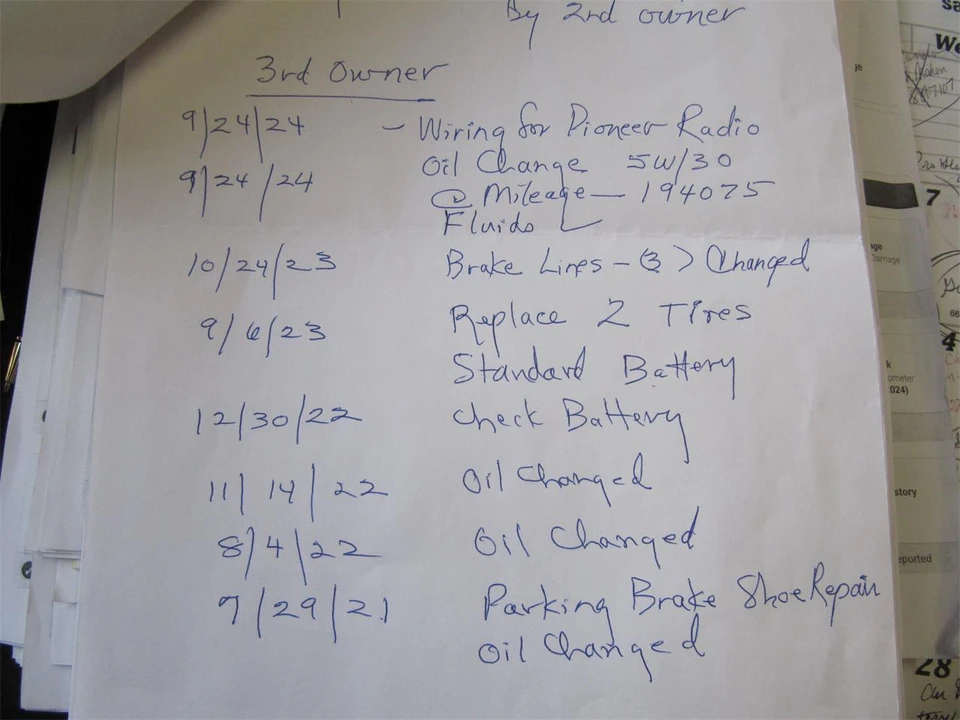 By 2nd owner
3rd Owner
9/24/24 - Wiring for Pioneer Radio
9/24/24 Oil Change 5W/30
@ Mileage - 194075
Fluids ✓
10/24/23 Brake Lines - (3) Changed
9/6/23 Replace 2 Tires
Standard Battery
12/30/22 Check Battery
11/14/22 Oil Changed
8/4/22 Oil Changed
7/29/21 Parking Brake Shoe Repair
Oil Changed
sa
We
7
4
024)
story
eported
28
Can